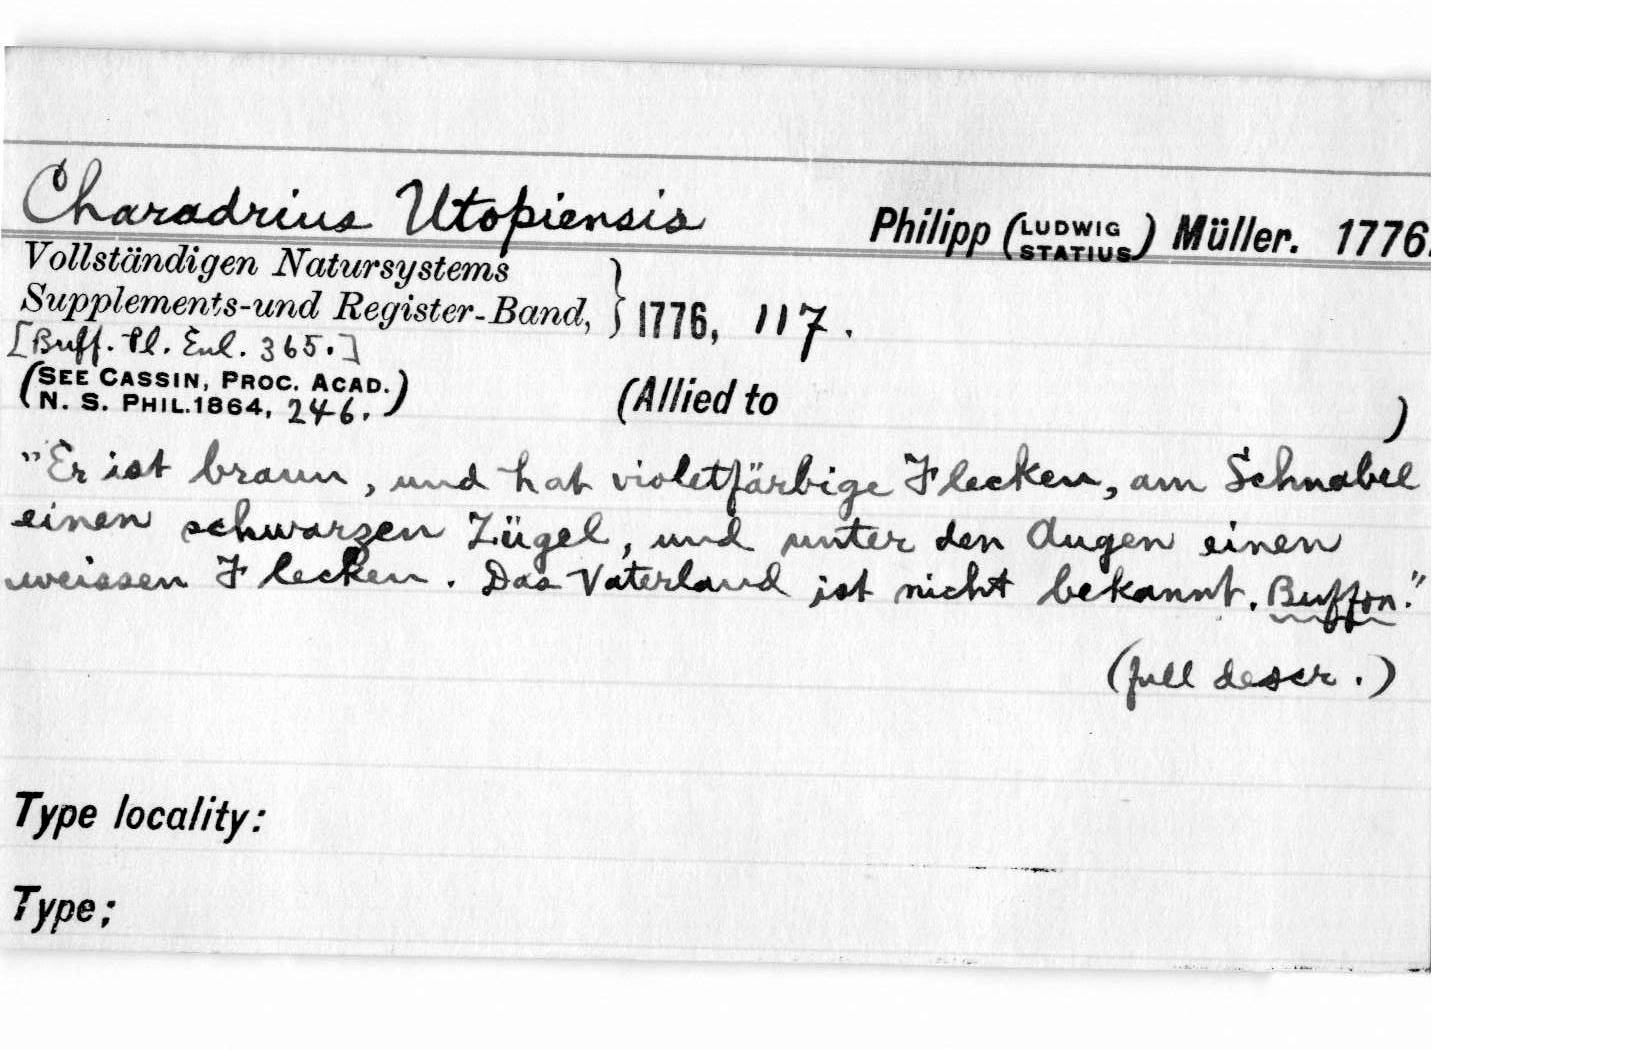 Charadrius Utopiensis Philipp (LUDWIG STATIUS) Müller. 1776.
Vollständigen Natursystems
Supplements-und Register-Band, } 1776, 117.
[Buff. Pl. Enl. 365.]
(SEE CASSIN, PROC. ACAD.
N. S. PHIL. 1864, 246.) (Allied to )
"Er ist braun, und hat violetfärbige Flecken, am Schnabel
einen schwarzen Zügel, und unter den Augen einen
weissen Flecken. Das Vaterland ist nicht bekannt. Buffon."
(full descr.)
Type locality:
Type;